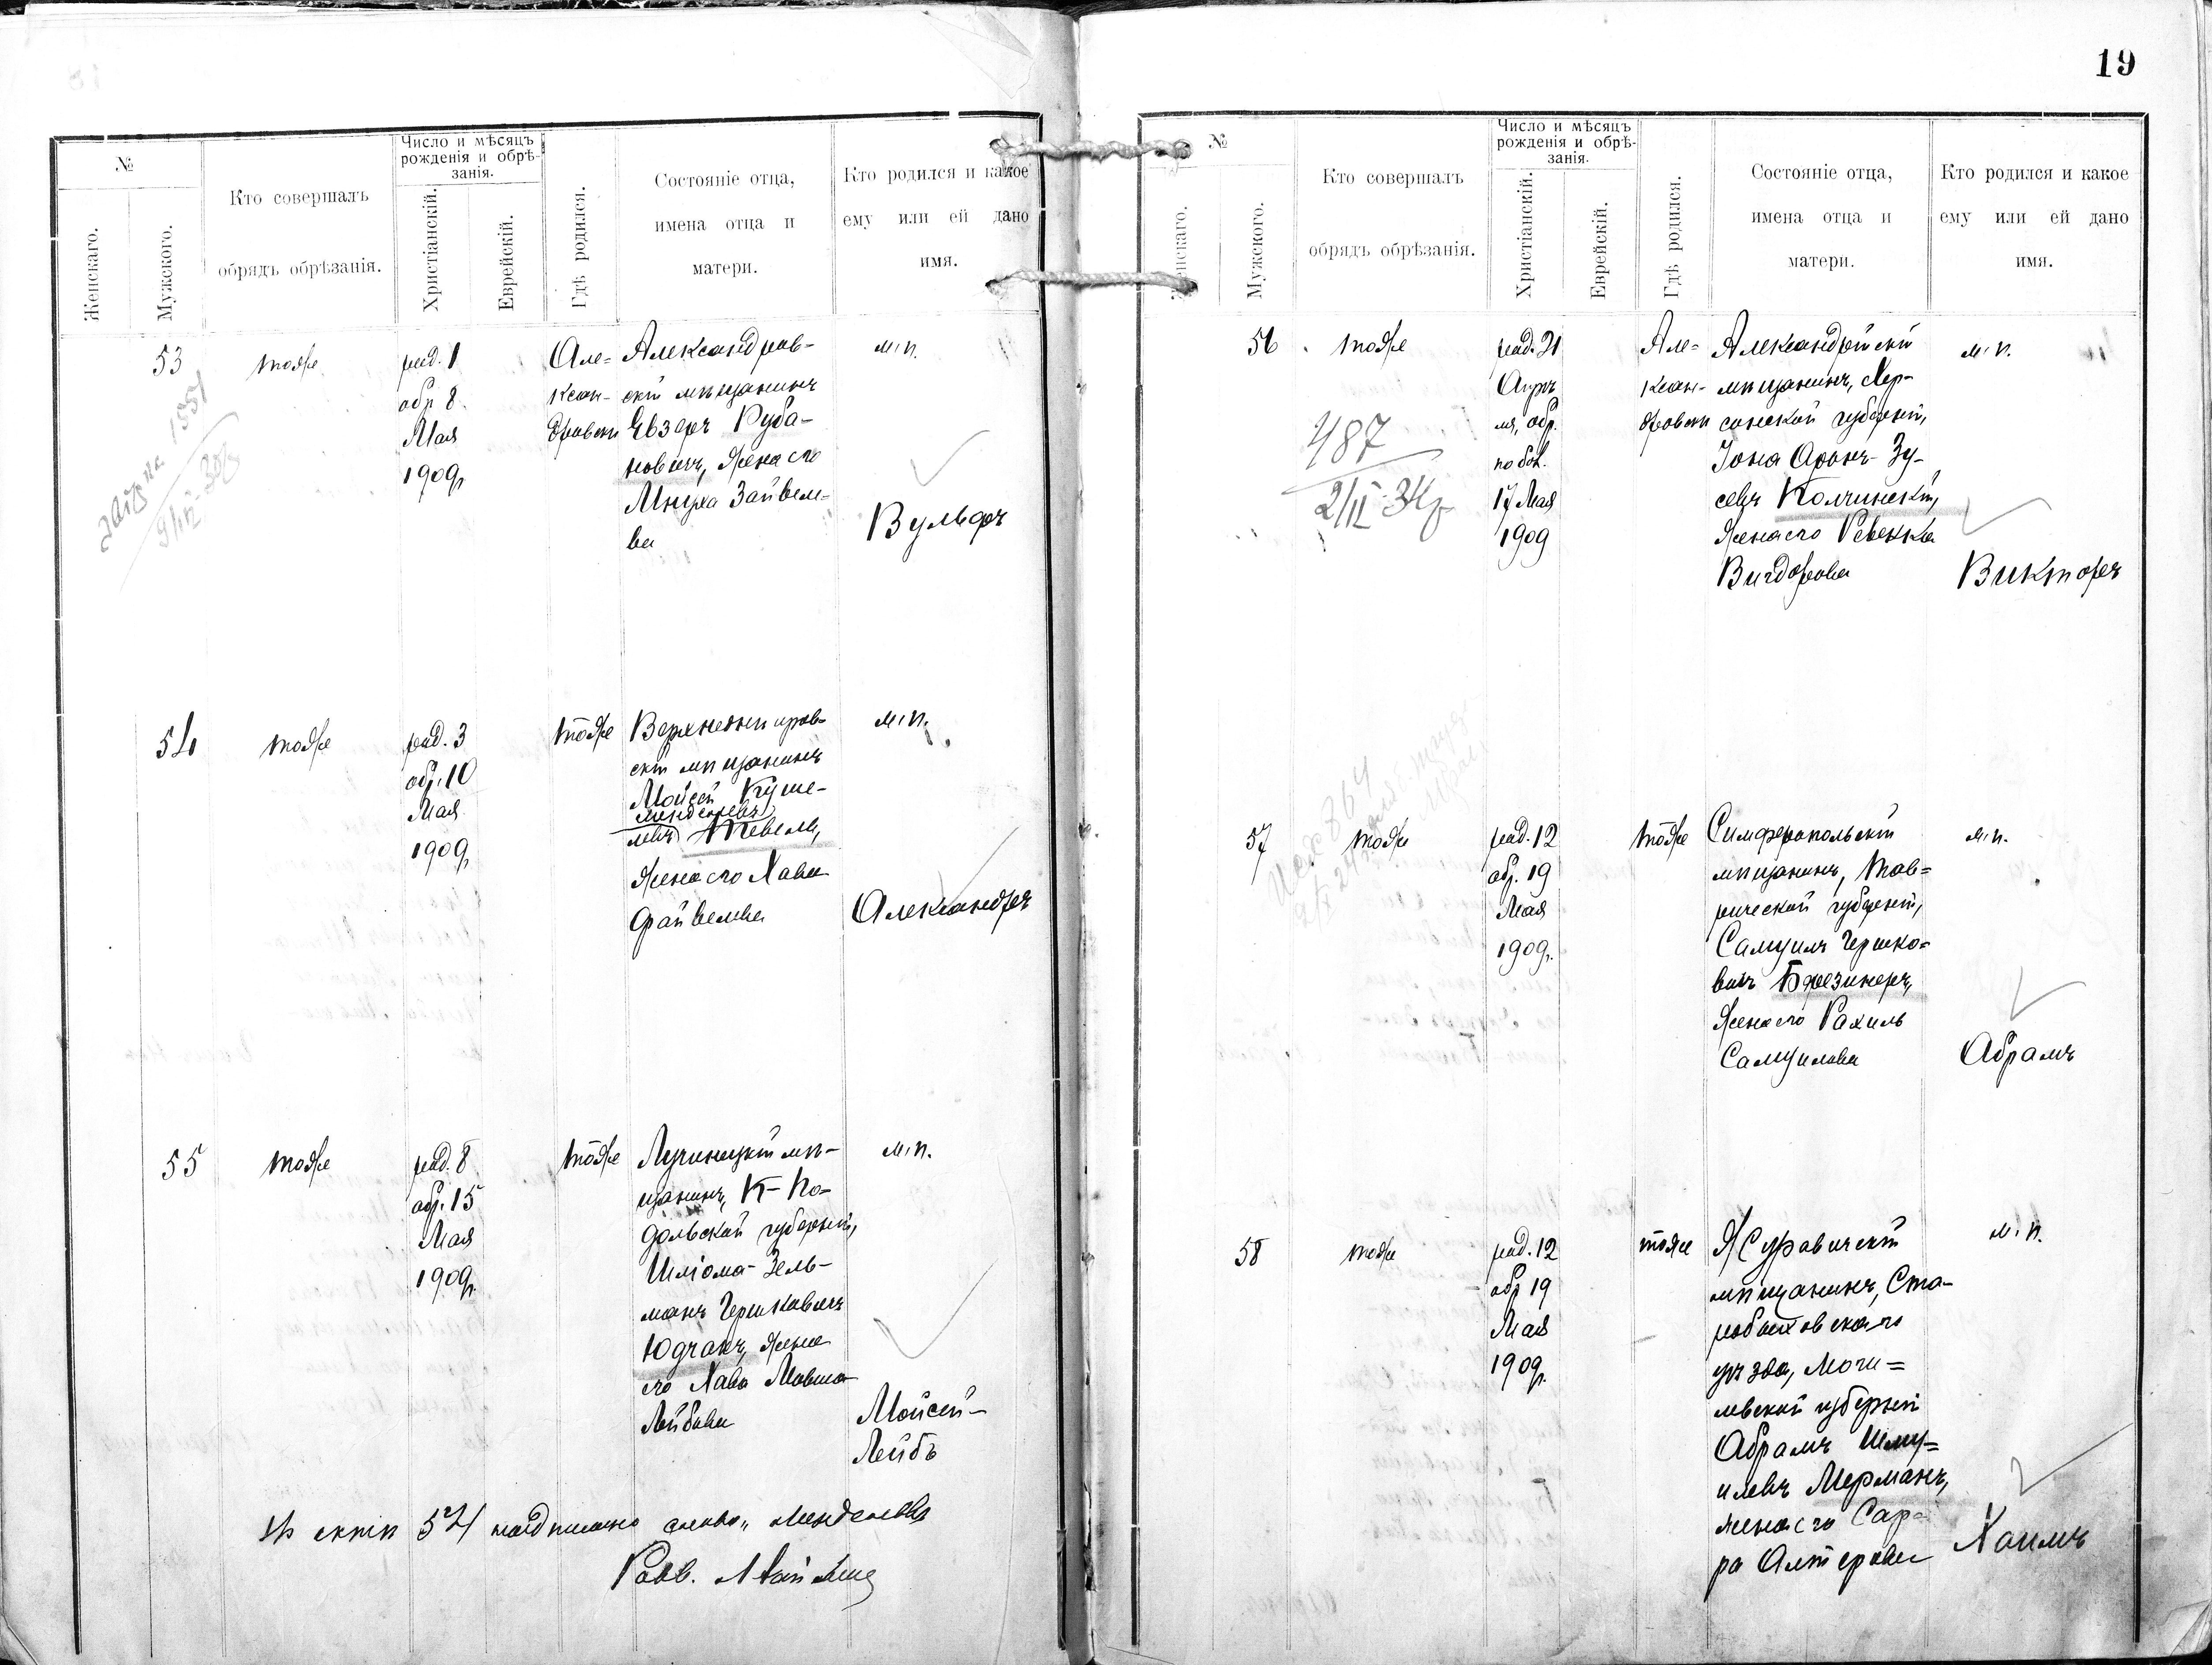 19
№
Женскаго.
Мужского.
Кто совершалъ
обрядъ обрѣзанія.
Число и мѣсяцъ
рожденія и обрѣ-
занія.
Христіанскій.
Еврейскій.
Гдѣ родился.
Состояніе отца,
имена отца и
матери.
Кто родился и какое
ему или ей дано
имя.
53
тоже
род. 1
обр 8
Мая
1909 г.
Але=
ксан-
дровскъ
Александров-
скій мѣщанинъ
Евзеръ Руба-
новичъ, жена его
Мнуха Зайвеле-
ва
м. п.
Вульфъ
9/III-38
54
тоже
род. 3
обр. 10
Мая
1909 г.
тоже
Верхнеднѣпров-
скій мѣщанинъ
Мойсей Куше-
Менделевъ
левъ Тевель,
жена его Хава
Файвелева
м. п.
Александръ
55
тоже
род. 8
обр. 15
Мая
1909 г.
тоже
Лучинецкій мѣ-
щанинъ, К-По-
дольской губерніи,
Шліома-Зель-
манъ Гершковичъ
Юдчакъ, жена
его Хава Мовша-
Лейбова
м. п.
Мойсей-
Лейбъ
Въ актѣ 54 надписано слово „Менделевъ
Равв.
№
Женскаго.
Мужского.
Кто совершалъ
обрядъ обрѣзанія.
Число и мѣсяцъ
рожденія и обрѣ-
занія.
Христіанскій.
Еврейскій.
Гдѣ родился.
Состояніе отца,
имена отца и
матери.
Кто родился и какое
ему или ей дано
имя.
56
тоже
род. 21
Апрѣ
ля, обр.
по бол.
17 Мая
1909
Але=
ксан-
дровскъ
Александрійскій
мѣщанинъ, Хер-
сонской губерніи,
Іона Аронъ-Зу-
севъ Колчинскій,
жена его Ревекка
Вигдорова
м. п.
Викторъ
487
2/II-34 г
57
тоже
род. 12
обр. 19
Мая
1909 г.
тоже
Симферопольскій
мѣщанинъ, Тав=
рической губерніи,
Самуилъ Гершко=
вичъ Брезинеръ,
жена его Рахиль
Самуилова
м. п.
Абрамъ
864
58
тоже
род. 12
обр 19
Мая
1909 г.
тоже
Журавичскій
мѣщанинъ, Ста-
робыховскаго
уѣзда, Моги=
левской губерніи
Абрамъ Шму=
илевъ Мерманъ,
жена его Сар-
ра Алтерова
м. п.
Хаимъ